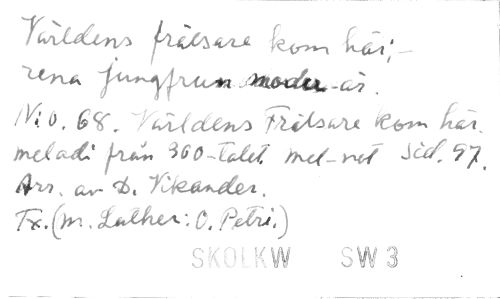 Världens frälsare kom här;-
rena jungfrun moder är.
N:o. 68. Världens Frälsare kom här.
melodi från 300-talet mel-not Sid. 97.
Arr. av D. Vikander.
Tx. (M. Luther: O. Petri.)
SKOLKW SW3